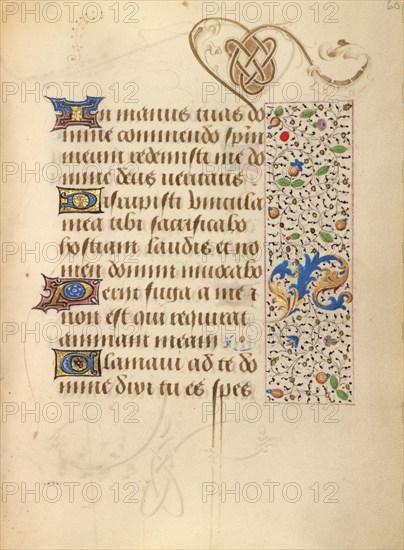 60
In manus tuas do
mine commendo spm
meum redemisti me do
mine deus veritatis
Dirupisti vincula
mea tibi sacrificabo
hostiam laudis et no
men domini invocabo
Periit fuga a me ⁊
non est qui requirat
animam meam
Clamavi ad te do
mine dixi tu es spes
PHOTO 12